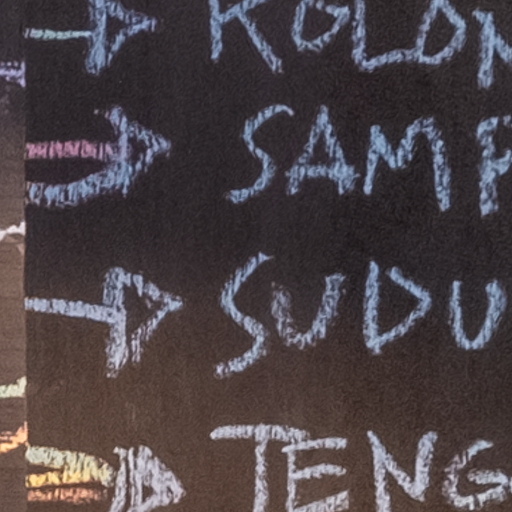 → KOLON
→ SAMP
→ SUDU
→ TENG